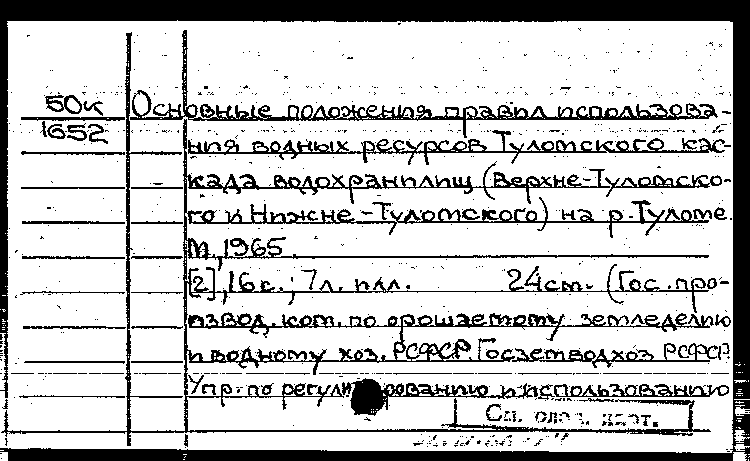 50к Основные положения правил использова-
1652 ния водных ресурсов Туломского кас-
када водохранилищ (Верхне-Туломско-
го и Нижне-Туломского) на р.Туломе.
М., 1965.
[2], 16с.; 7л. илл. 24см. (Гос.про-
извод. ком. по орошаемому земледелию
и водному хоз. РСФСР. Госземводхоз РСФСР
Упр. по регулированию и использованию
См.